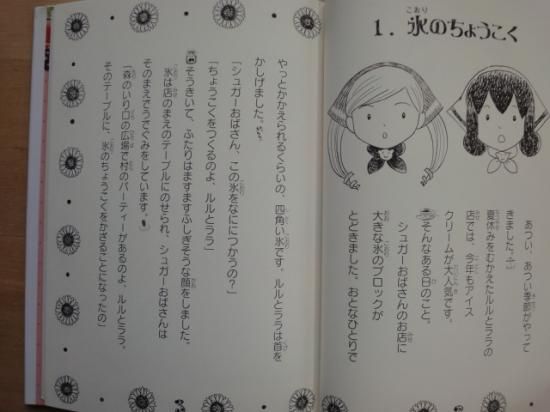 1. 氷のちょうこく
こおり
あつい、あつい季節がやって
きました。
夏休みをむかえたルルとララの
店では、今年もアイス
クリームが大人気です。
そんなある日のこと。
シュガーおばさんのお店に
大きな氷のブロックが
とどきました。おとなひとりで
やっとかかえられるくらいの、四角い氷です。ルルとララは首を
かしげました。
「シュガーおばさん、この氷をなににつかうの？」
「ちょうこくをつくるのよ、ルルとララ」
そうきいて、ふたりはますますふしぎそうな顔をしました。
氷は店のまえのテーブルにのせられ、シュガーおばさんは
そのまえでうでぐみをしています。
「森のいり口の広場で村のパーティーがあるのよ、ルルとララ。
そのテーブルに、氷のちょうこくをかざることになったの」